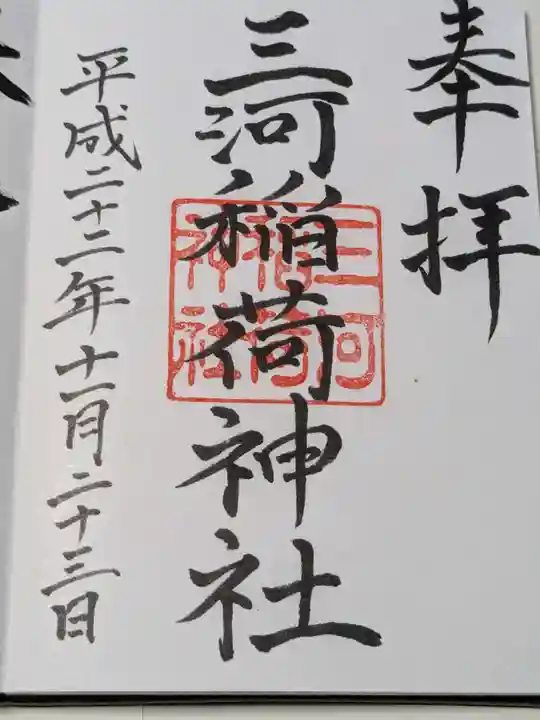 奉拝
三河稲荷神社
三河
稲荷
神社
平成二十二年十一月二十三日